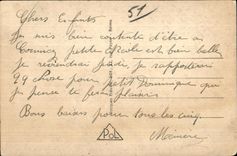 51
Chers Enfants
Je suis bien contente d'être à
petite école est bien belle
je reviendrai jeudi, je rapporterai
q q chose pour petit Dominique qui
je pense lui fera plaisir
Bons baisers pour tous les cinq.
Mémère